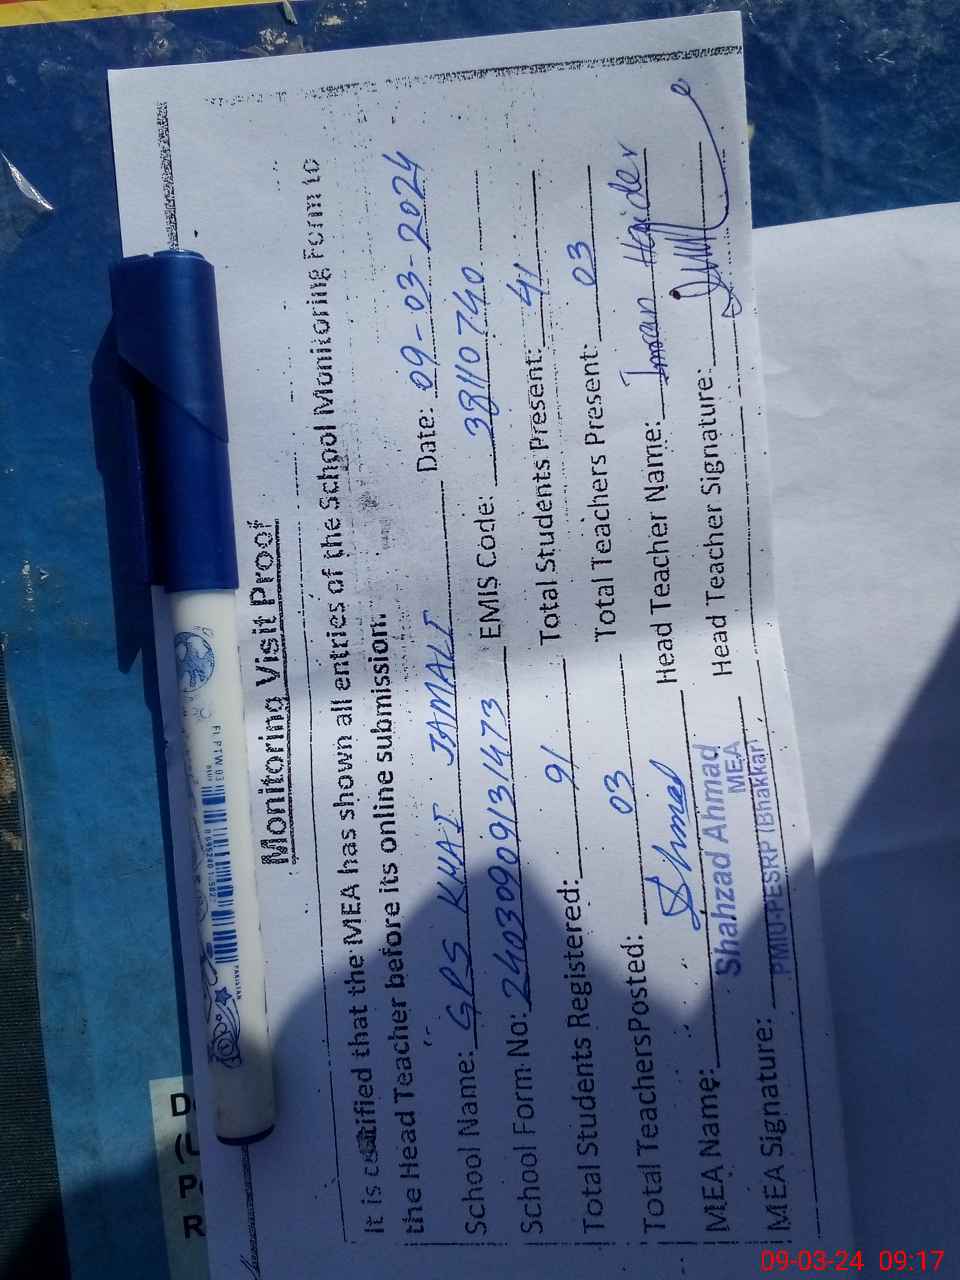 Monitoring Visit Proof
It is certified that the MEA has shown all entries of the School Monitoring Form to
the Head Teacher before its online submission.
School Name: GPS KHAI JAMALI Date: 09-03-2024
School Form No: 24030909131473 EMIS Code: 38110740
Total Students Registered: 91 Total Students Present: 41
Total Teachers Posted: 03 Total Teachers Present: 03
MEA Name: Head Teacher Name: Imran Haider
Shahzad Ahmad
MEA
PMIU-PESRP (Bhakkar)
MEA Signature: Head Teacher Signature:
PAKISTAN
FI PTW 03
09-03-24 09:17